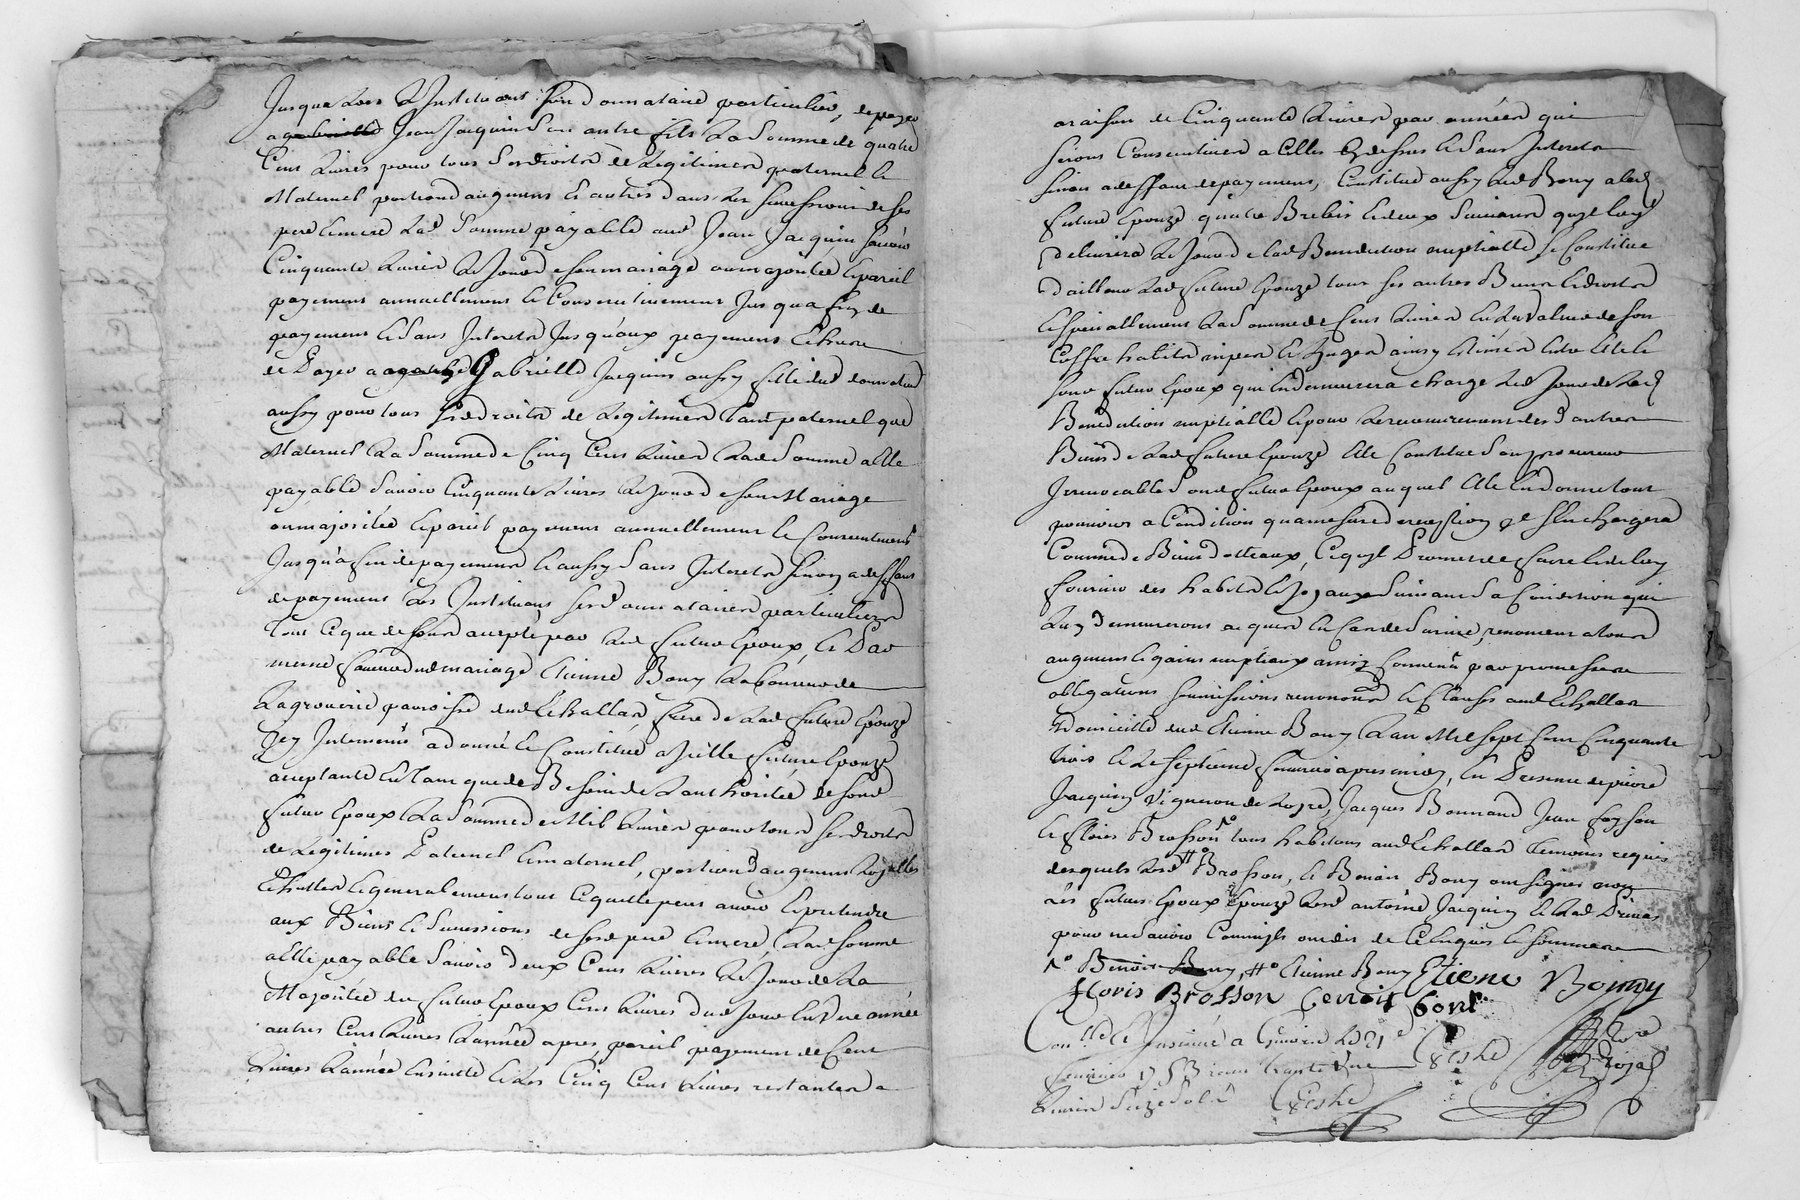 Jusqua Lors L'Instituant son donnataire particulier, de payer
a Jean Jacquin son autre fils La Somme de quatre
Cens Livres pour tous ses droits de Legitimes paternel &
Maternel portion d'augment & autres dans Les successions de ses
pere & mere Lad Somme payable aud Jean Jacquin sçavoir
Cinquante Livres Le Jour de son mariage ou majorité & pareil
payement annuellement & Consecutivement Jusqua fin de
payement & Sans Interets Jusqu'aux payements Echus
de Payer a Gabrielle Jacquin aussy fille dud donnateur
aussy pour tous ses droits de Legitimes tant paternel que
Maternel La Somme de Cinq Cens Livres Lad Somme a Elle
payable Sçavoir Cinquante Livres Le Jour de son Mariage
ou majorité & pareil payement annuellement & Consecutivement
Jusqu'a fin de payement & aussy Sans Interets sinon a deffaut
de payement Les Instituant ses donnataires particuliers
tout ce que dessus accepté par Led futur Epoux, & Par
meme faveur dud mariage Etienne Bony Laboureur de
Lagrouerie parroisse dud Echallas frere de Lad future Epouze
Icy Intervenu a donné & Constitué a Icelle future Epouze
acceptante En tant que de Besoin de L'authorité de sond
futur Epoux La Somme de Mil Livres pour tous ses droits
de Legitimes Paternel & maternel, portion d'augment Loyalles
Echutes & generalement tout ce quelle peut avoir & pretendre
aux Biens & Successions de sesd pere & mere, Lad Somme
a Elle payable Sçavoir deux Cens Livres Le Jour de La
Majorité du futur Epoux Cens Livres dud Jour En une année
autres Cens Livres L'année apres, pareil payement de Cent
Livres L'année Ensuitte & Les Cinq Cens Livres restantes a
a raison de Cinquante Livres par années qui
seront Consecutives a Celles Cy dessus & Sans Interets
sinon a deffaut de payement, Constitue aussy Led Bony a lad
future Epouze quatre Brebis & deux Suivants quil luy
delivrera Le Jour de lad Benediction nuptialle, se Constitue
d'ailleur Lad future Epouze tous ses autres Biens & droits
& specialement La Somme de Cens Livres En La Valeur de son
Coffre habits nipes & Linges ainsy Estimés Entre Elle &
sond futur Epoux qui En demeurera chargé Led Jour de Lad
Benediction nuptialle & pour Le recouvrement desd autres
Biens de Lad future Epouze Elle Constitue son procureur
Irrevocable Sond futur Epoux auquel Elle En donne tout
pouvoir a Condition qu'a mesure de reception Il s'En chargera
Comme de Biens dotteaux, Ce quil Promet de faire & de luy
fournir des habits & Joyaux Suivant Sa Condition qui
Luy demeureront acquis En Cas de Survie, renonceant a tous
augment & gains nuptiaux ainsy Convenu par promesses
obligations soumissions renonon & Clauses aud Echallas
domicille dud Etienne Bony L'an Mil sept Cens Cinquante
trois & Le septieme fevrier apres midy, En Presence de pierre
Jacquin Vigneron de Loyre, Jacques Bonnand Jean foyson
& floris Brosson tous habitans aud Echallas temoins requis
desquels Led Brosson, & Benoit Bony ont signés non
Les futurs Epoux Epouze Led antoine Jacquin & Lad Primas
pour ne sçavoir Comme ils ont dit de Ce Enquis & Sommés
Benoit Bony, Etienne Bony Etiene Bonny
floris Brosson Benoit boni
Conllé & Insinué a Givors Le 21e
fevrier 1753 reçu trente Une
Livres Seize Sols